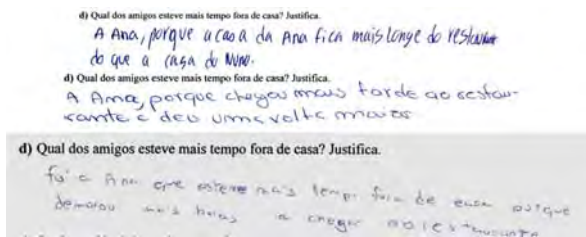 d) Qual dos amigos esteve mais tempo fora de casa? Justifica.
A Ana, porque a casa da Ana fica mais longe do restaurante
do que a casa do Nuno.
d) Qual dos amigos esteve mais tempo fora de casa? Justifica.
A Ana, porque chegou mais tarde ao restau-
rante e deu uma volta maior
d) Qual dos amigos esteve mais tempo fora de casa? Justifica.
foi a Ana que esteve mais tempo fora de casa porque
demorou mais horas a chegar ao restaurante